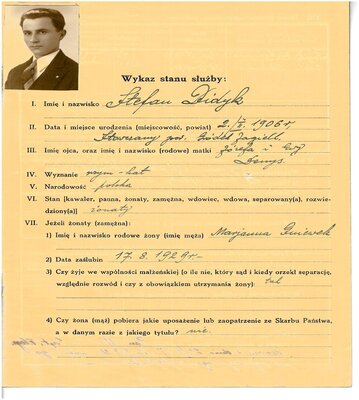 Wykaz stanu służby:
I. Imię i nazwisko Stefan Didyk
II. Data i miejsce urodzenia (miejscowość, powiat) 2. 1906 r,
pow. Gródek Jagiell.
III. Imię ojca, oraz imię i nazwisko (rodowe) matki Józefa i Ewy
IV. Wyznanie rzym-kat
V. Narodowość polska
VI. Stan [kawaler, panna, żonaty, zamężna, wdowiec, wdowa, separowany(a), rozwie-
dziony(a)] żonaty
VII. Jeżeli żonaty (zamężna):
1) Imię i nazwisko rodowe żony (imię męża) Marjanna Gniewek
2) Data zaślubin 17. 8. 1929 r.
3) Czy żyje we wspólności małżeńskiej (o ile nie, który sąd i kiedy orzekł separację,
względnie rozwód i czy z obowiązkiem utrzymania żony): tak
4) Czy żona (mąż) pobiera jakie uposażenie lub zaopatrzenie ze Skarbu Państwa,
a w danym razie z jakiego tytułu? nie.